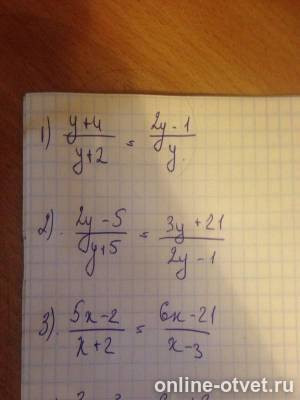 1) (y+4)/(y+2) = (2y-1)/y
2). (2y-5)/(y+5) = (3y+21)/(2y-1)
3). (5x-2)/(x+2) = (6x-21)/(x-3)
online-otvet.ru